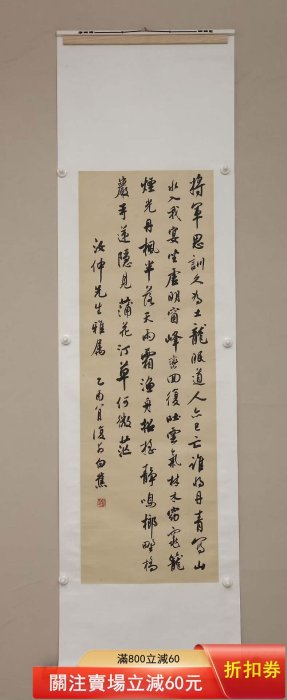 將軍思訓久為土龍眠道人亦已亡誰將丹青寫山
水入我宴坐虛明窗峰巒回復吐雲氣林木窈窕籠
煙光丹楓半落天雨霜漁舟搖艣靜鳴榔野橋
嚴寺遙隱見蒲花汀草何微茫
汝仲先生雅屬 乙酉八月復翁白蕉
滿800立減60
關注賣場立減60元
折扣券